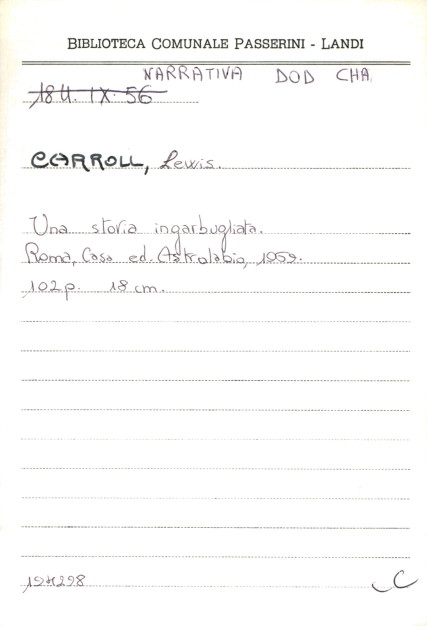 BIBLIOTECA COMUNALE PASSERINI - LANDI
NARRATIVA DOD CHA
184. IX. 56
CARROLL, Lewis.
Una storia ingarbugliata.
Roma, Casa ed. Astrolabio, 1959.
102 p. 18 cm.
194298 C